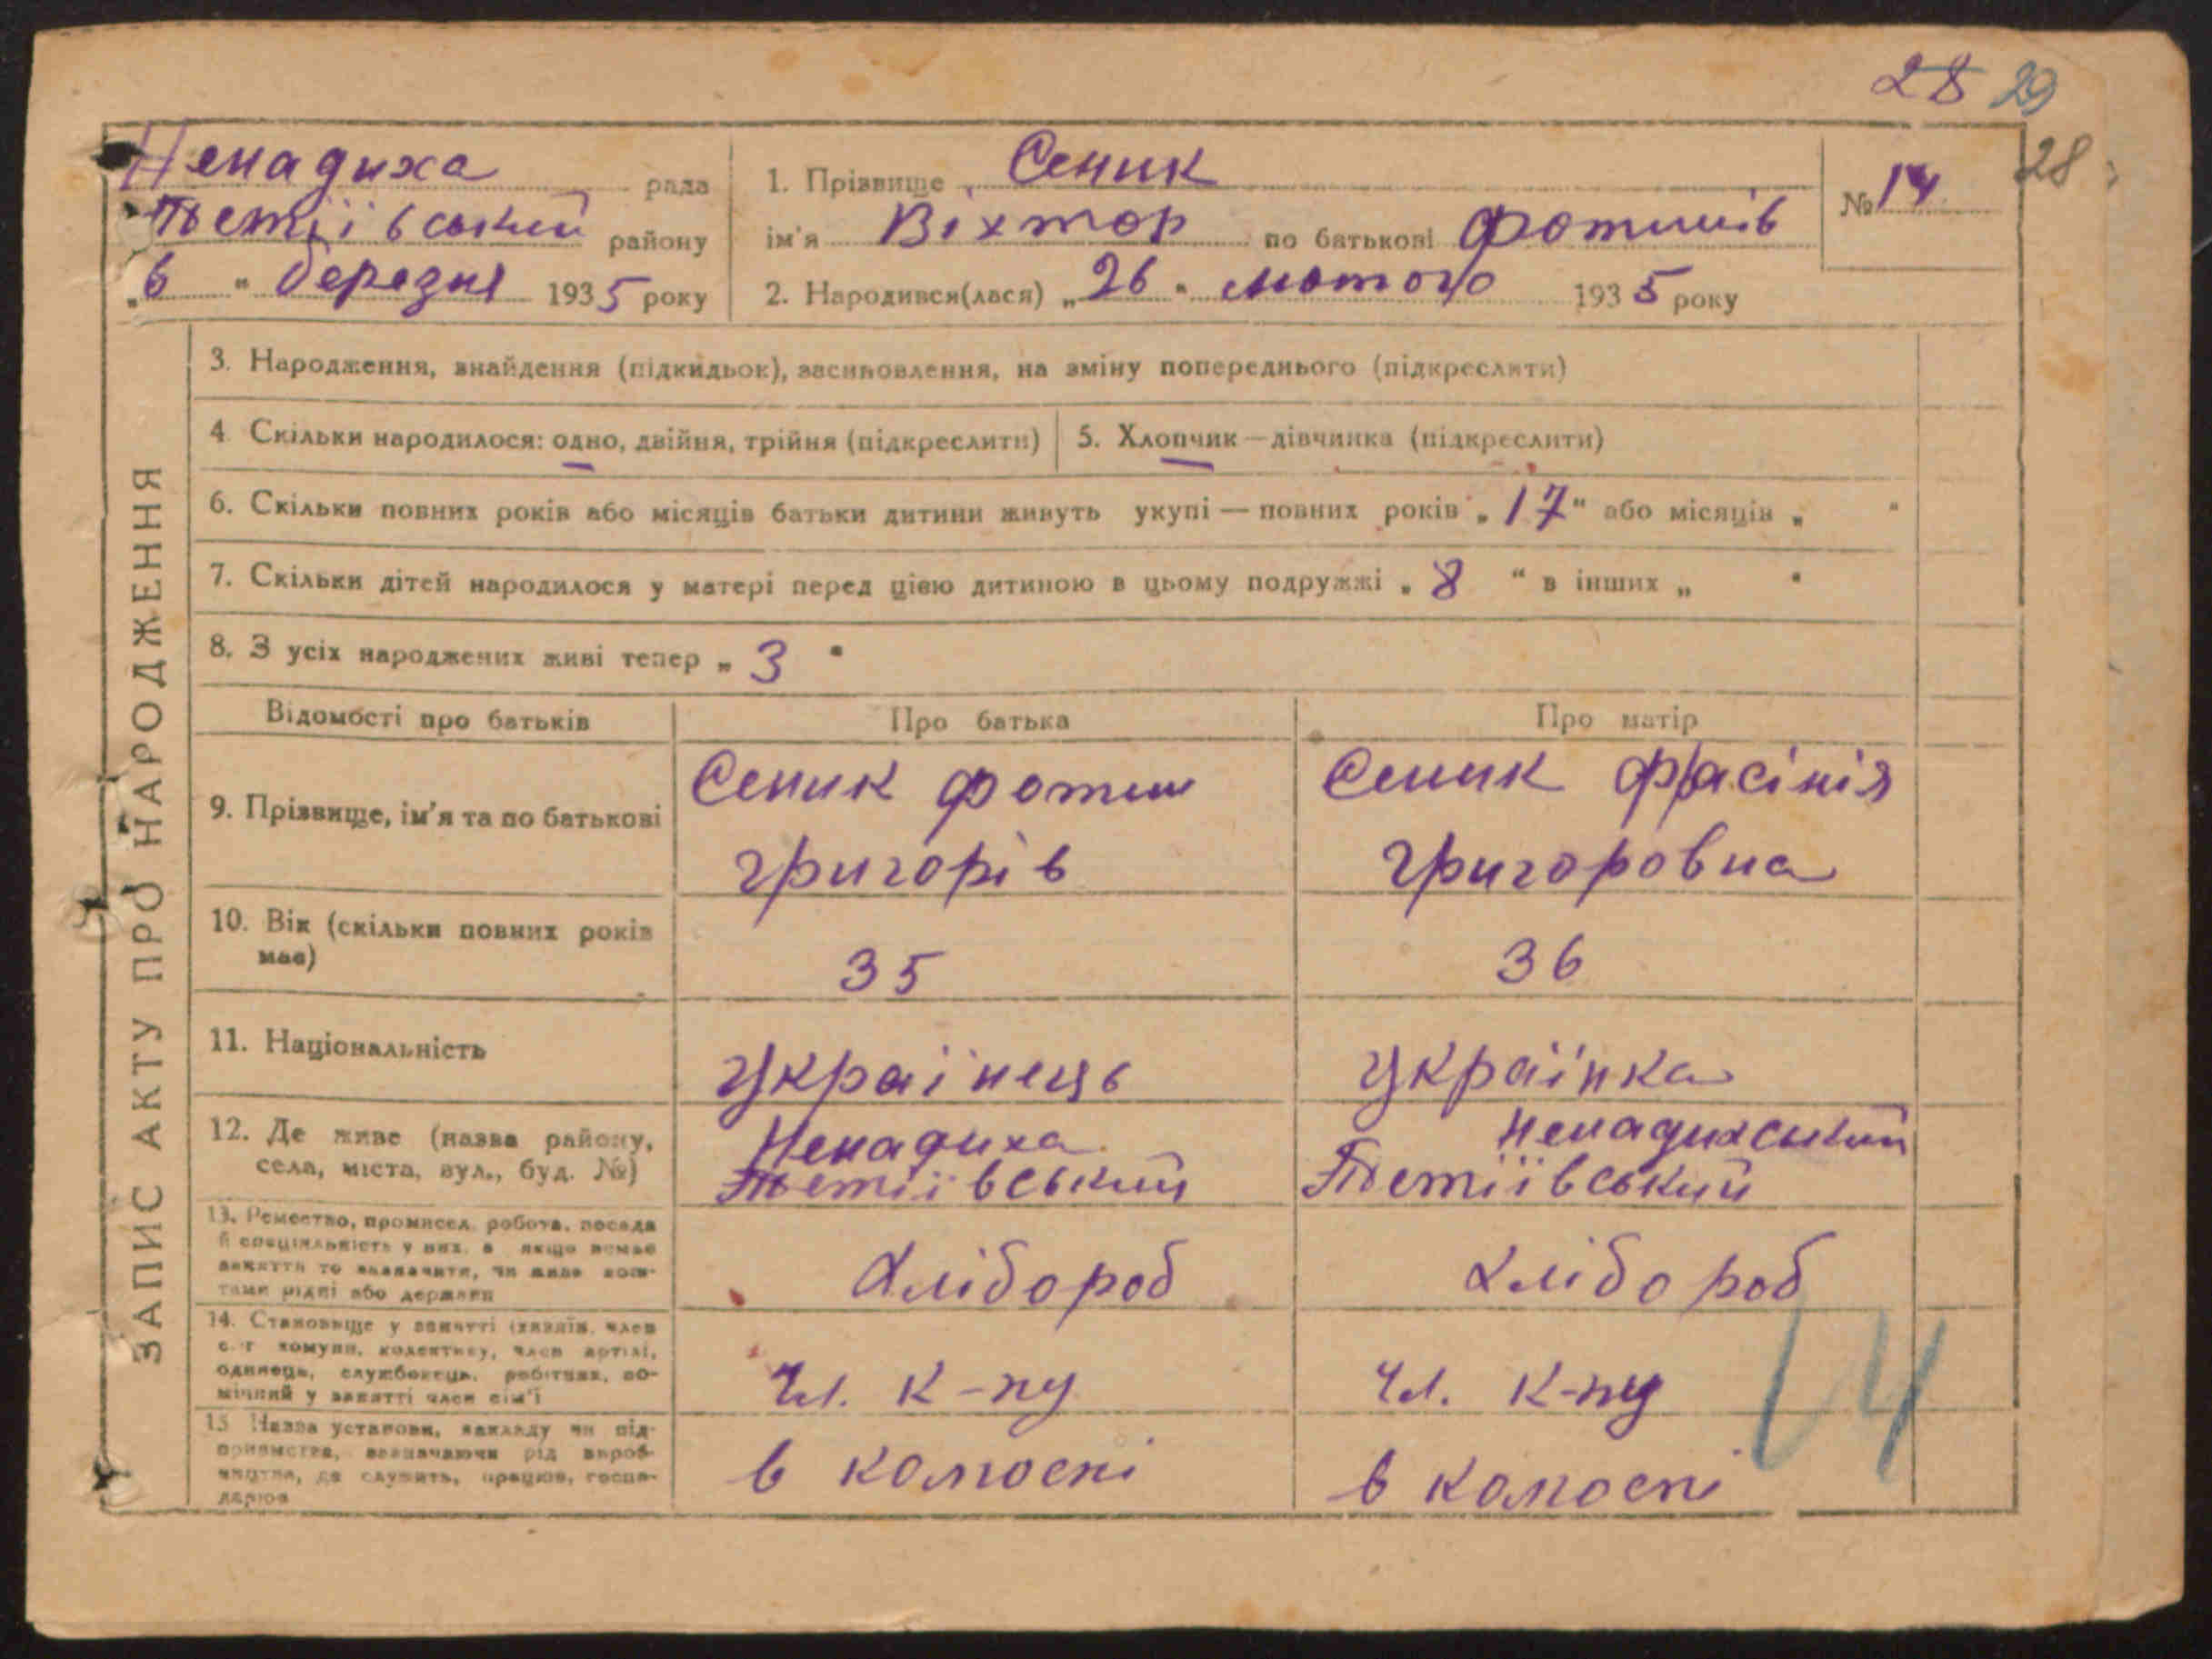 28 29
28
Ненадиха рада
Тетіївський району
„6" березня 1935 року
1. Прізвище Сеник
ім'я Віхтор по батькові Фотинів
2. Народився(лася) „26" лютого 1935 року
№ 14
ЗАПИС АКТУ ПРО НАРОДЖЕННЯ
3. Народження, знайдення (підкидьок), засиновлення, на зміну попереднього (підкреслити)
4. Скільки народилося: одно, двійня, трійня (підкреслити)
5. Хлопчик — дівчинка (підкреслити)
6. Скільки повних років або місяців батьки дитини живуть укупі — повних років „17" або місяців „ "
7. Скільки дітей народилося у матері перед цією дитиною в цьому подружжі „8" в інших „ "
8. З усіх народжених живі тепер „3"
Відомості про батьків
Про батька
Про матір
9. Прізвище, ім'я та по батькові
Сеник Фотин
григорів
Сеник
Григоровна
10. Вік (скільки повних років
має)
35
36
11. Національність
Українець
Українка
12. Де живе (назва району,
села, міста, вул., буд. №)
Ненадиха
Тетіївський
Ненадихський
Тетіївський
13. Ремество, промисел, робота, посада
й спеціяльність у них, а якщо немає
заняття то зазначити, чи живе кош-
тами рідні або держави
Хлібороб
Хлібороб
14. Становище у занятті (хазяїн, член
с.-г комуни, колективу, член артілі,
одинець, службовець, робітник, по-
мічний у занятті член сім'ї
Чл. к-пу
Чл. к-пу
15 Назва установи, закладу чи під-
приємства, зазначаючи рід вироб-
ництва, де служить, працює, госпо-
дарює
в колгоспі
в колгоспі
14